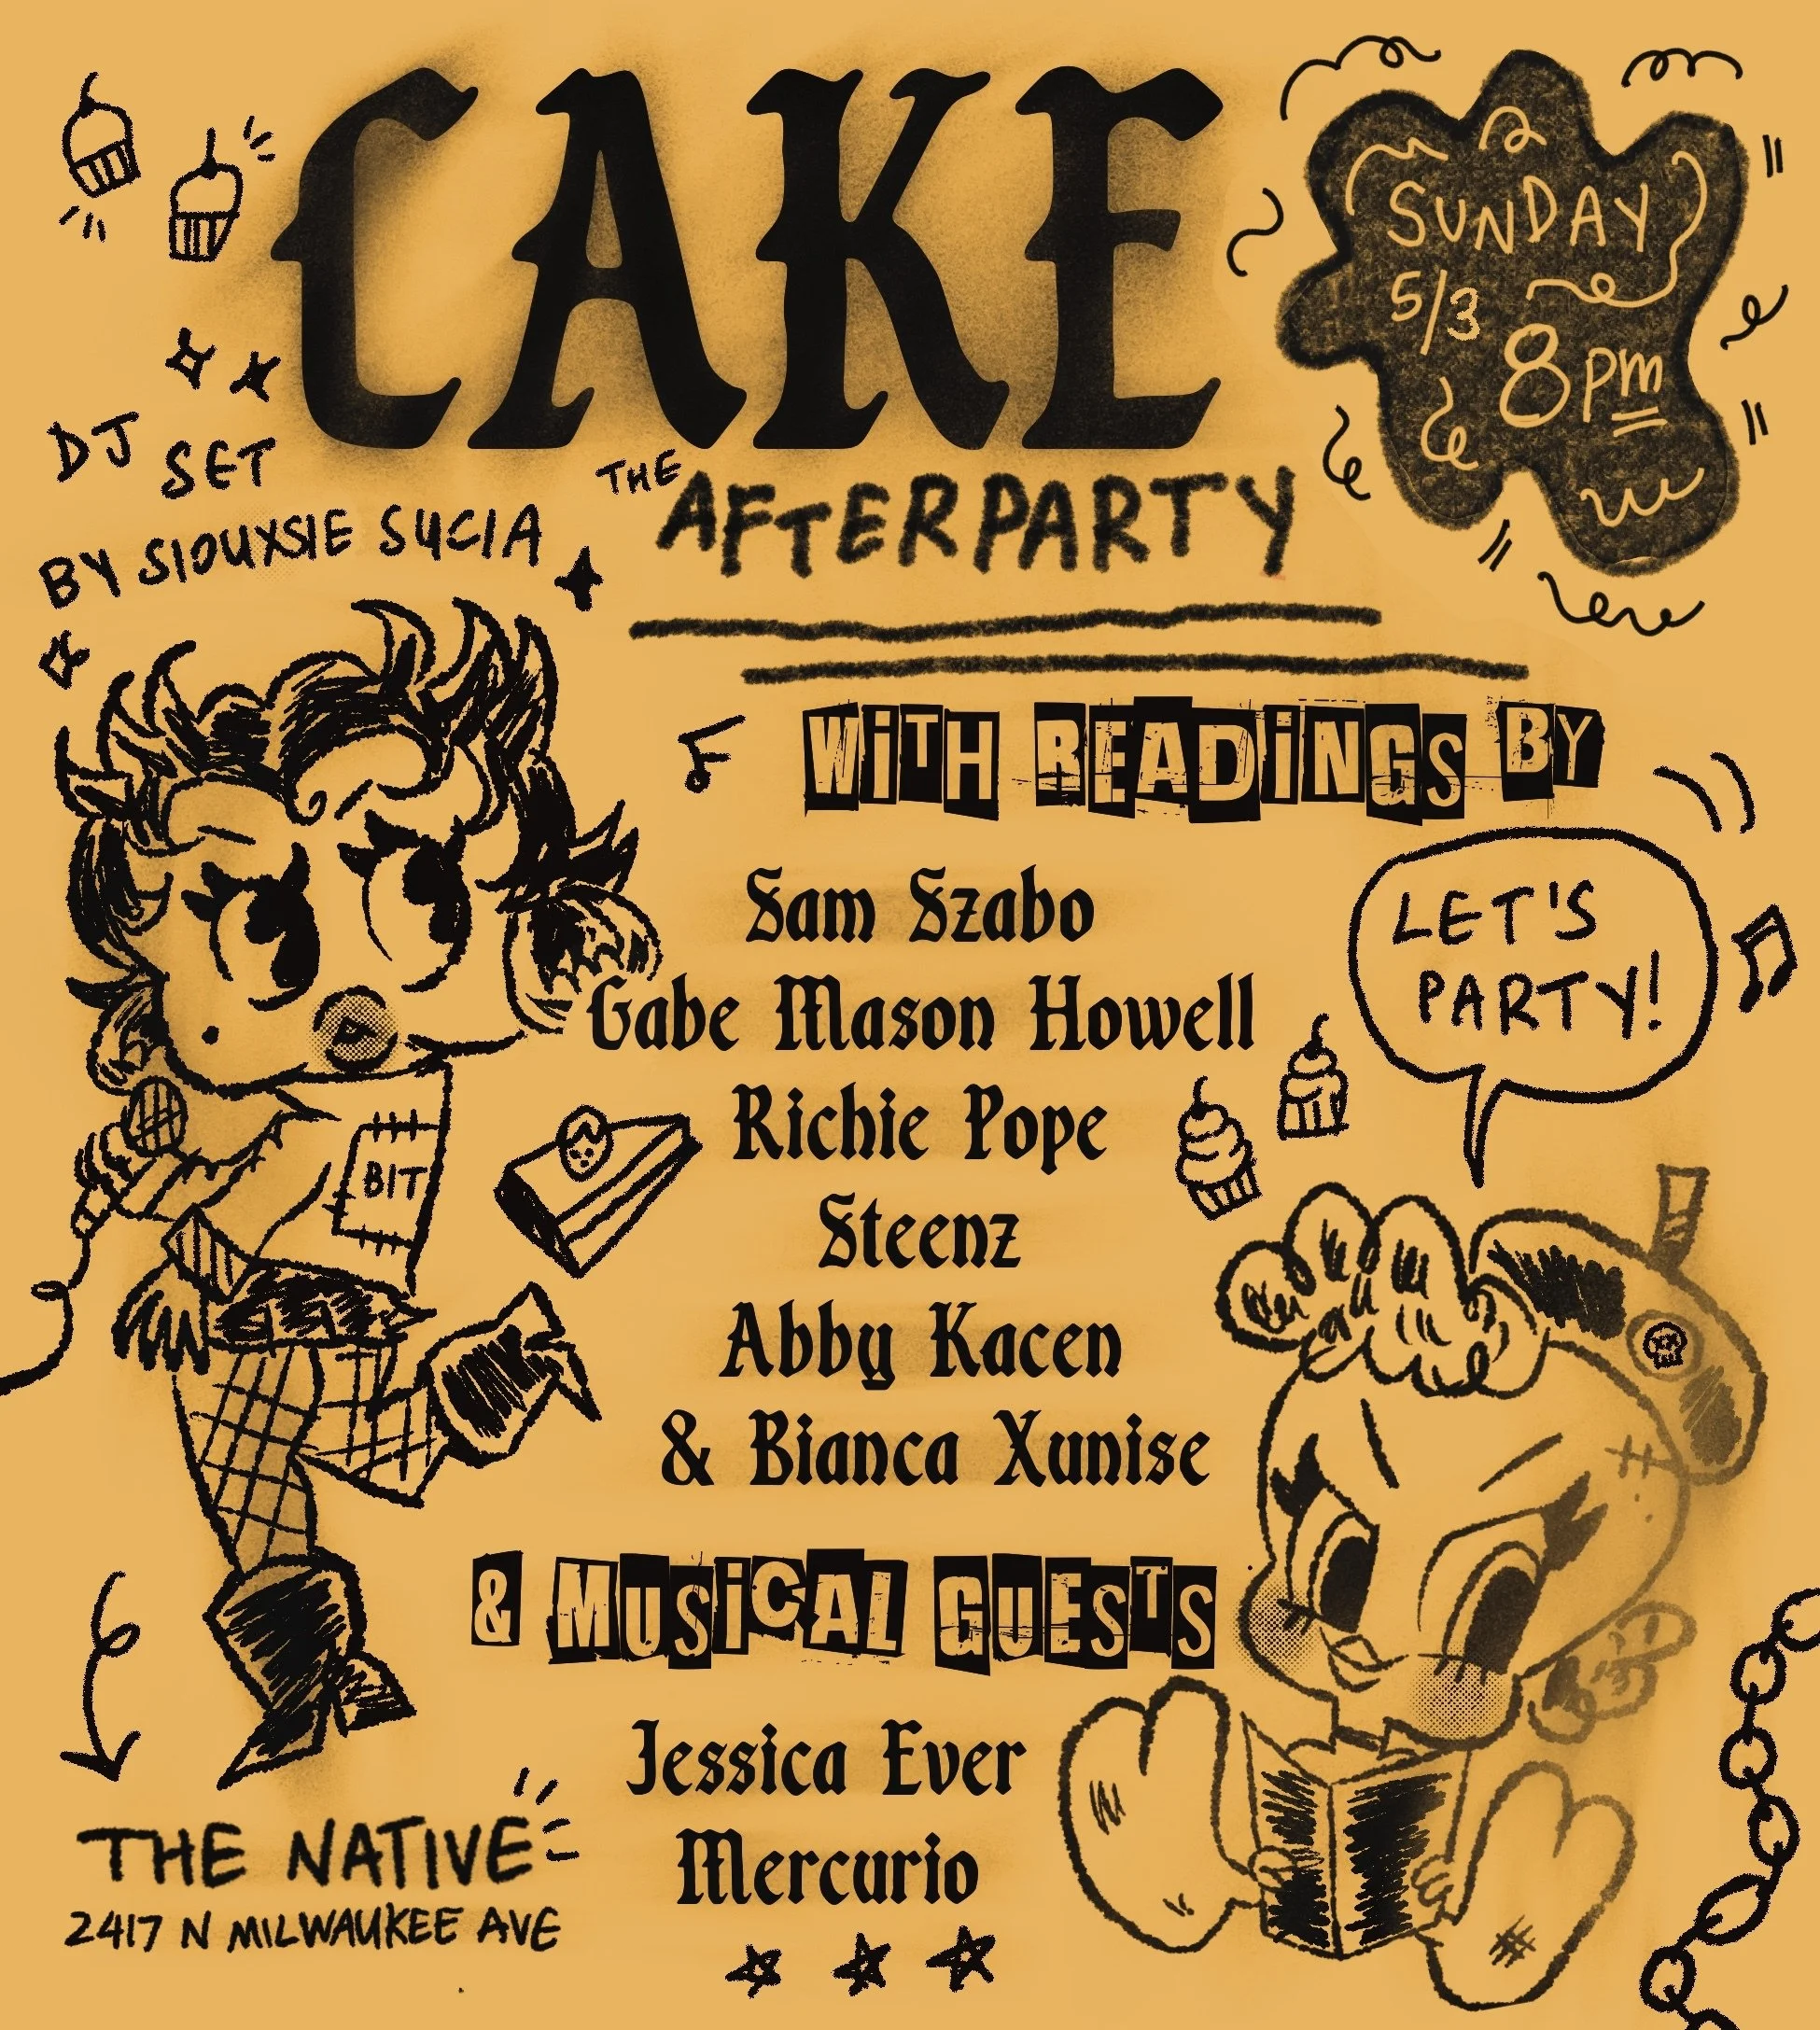 CAKE
THE
AFTERPARTY
SUNDAY
5/3
8pm
DJ SET
BY SIOUXSIE SUCIA
WiTH READiNGS BY
Sam Szabo
Gabe Mason Howell
Richie Pope
Steenz
Abby Kacen
& Bianca Xunise
LET'S
PARTY!
BIT
& MUSiCAL GUESTS
Jessica Ever
Mercurio
THE NATIVE
2417 N MILWAUKEE AVE